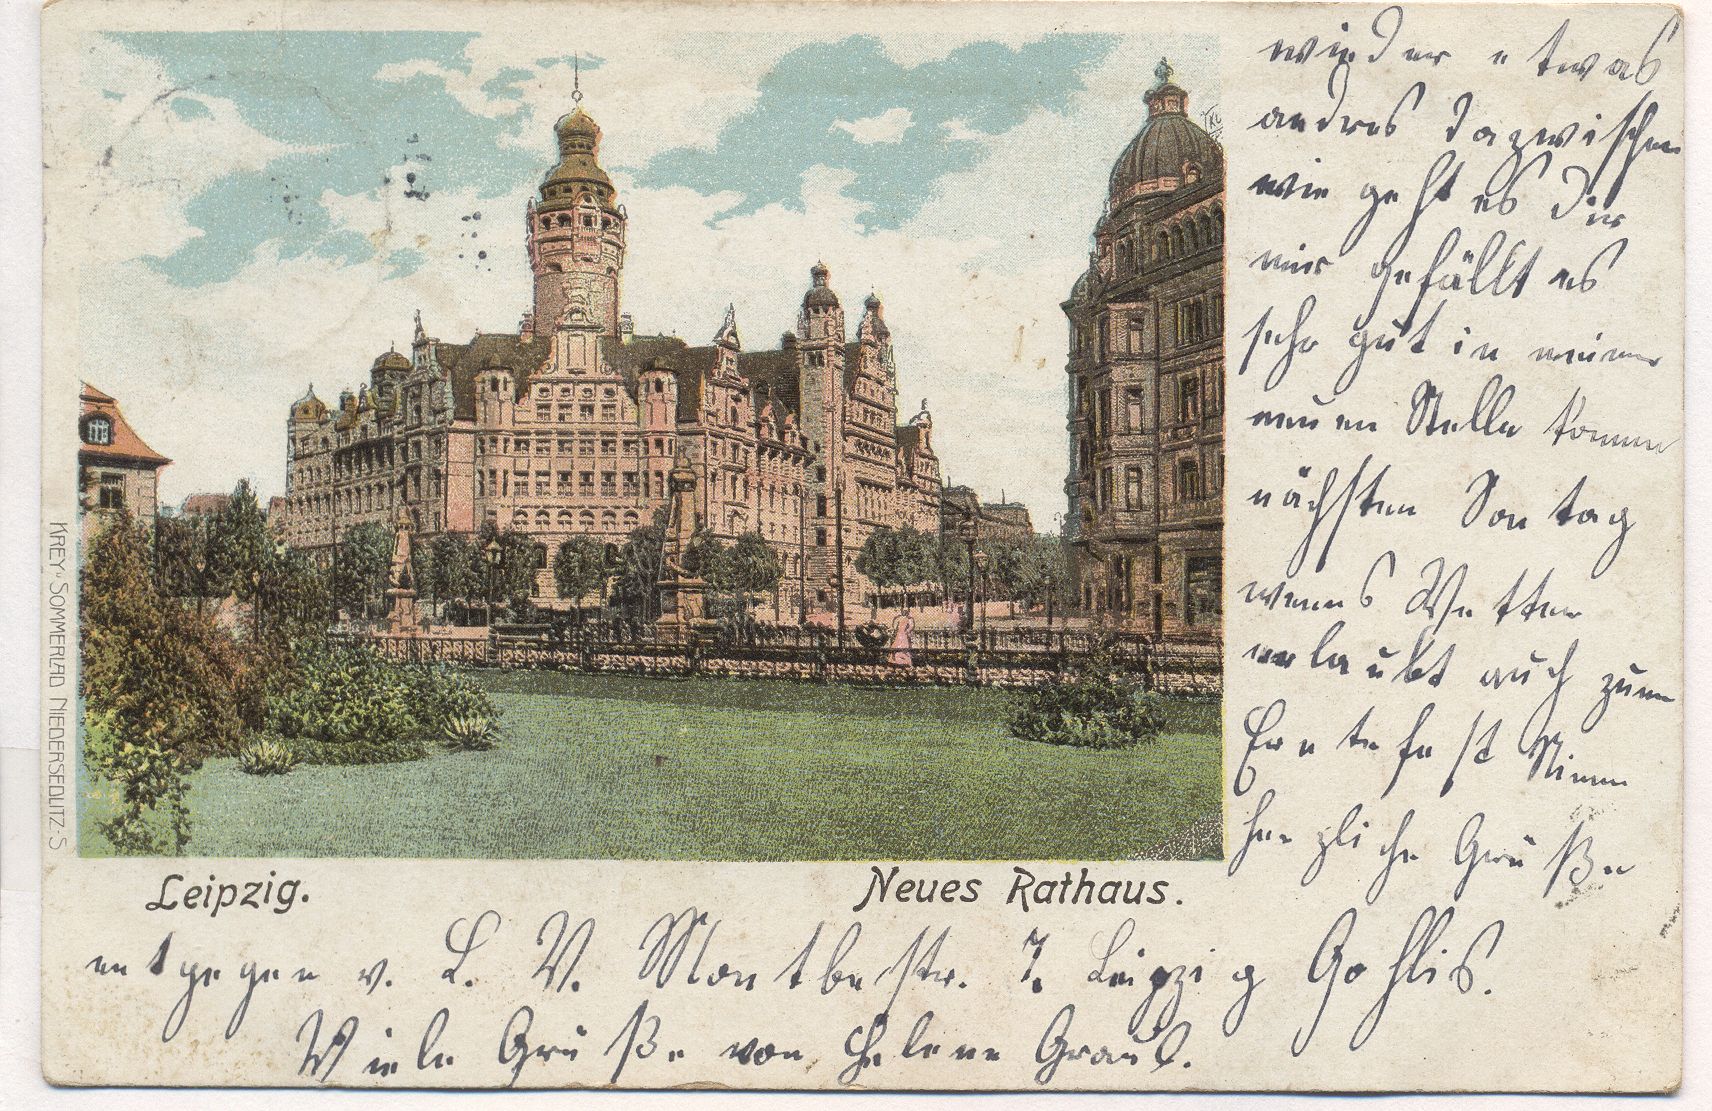 wieder etwas
andres dazwischen
wie geht es Dir
mir gefällt es
sehr gut in meiner
neuen Stelle komme
nächsten Sontag
wenns Wetter
erlaubt auch zum
Erntefest Nimm
herzliche Grüße
KREY-SOMMERLAD NIEDERSEDLITZ-S
Leipzig.
Neues Rathaus.
entgegen v. L. V. Montbestr. 7. Leipzig Gohlis.
Viele Grüße von Helene